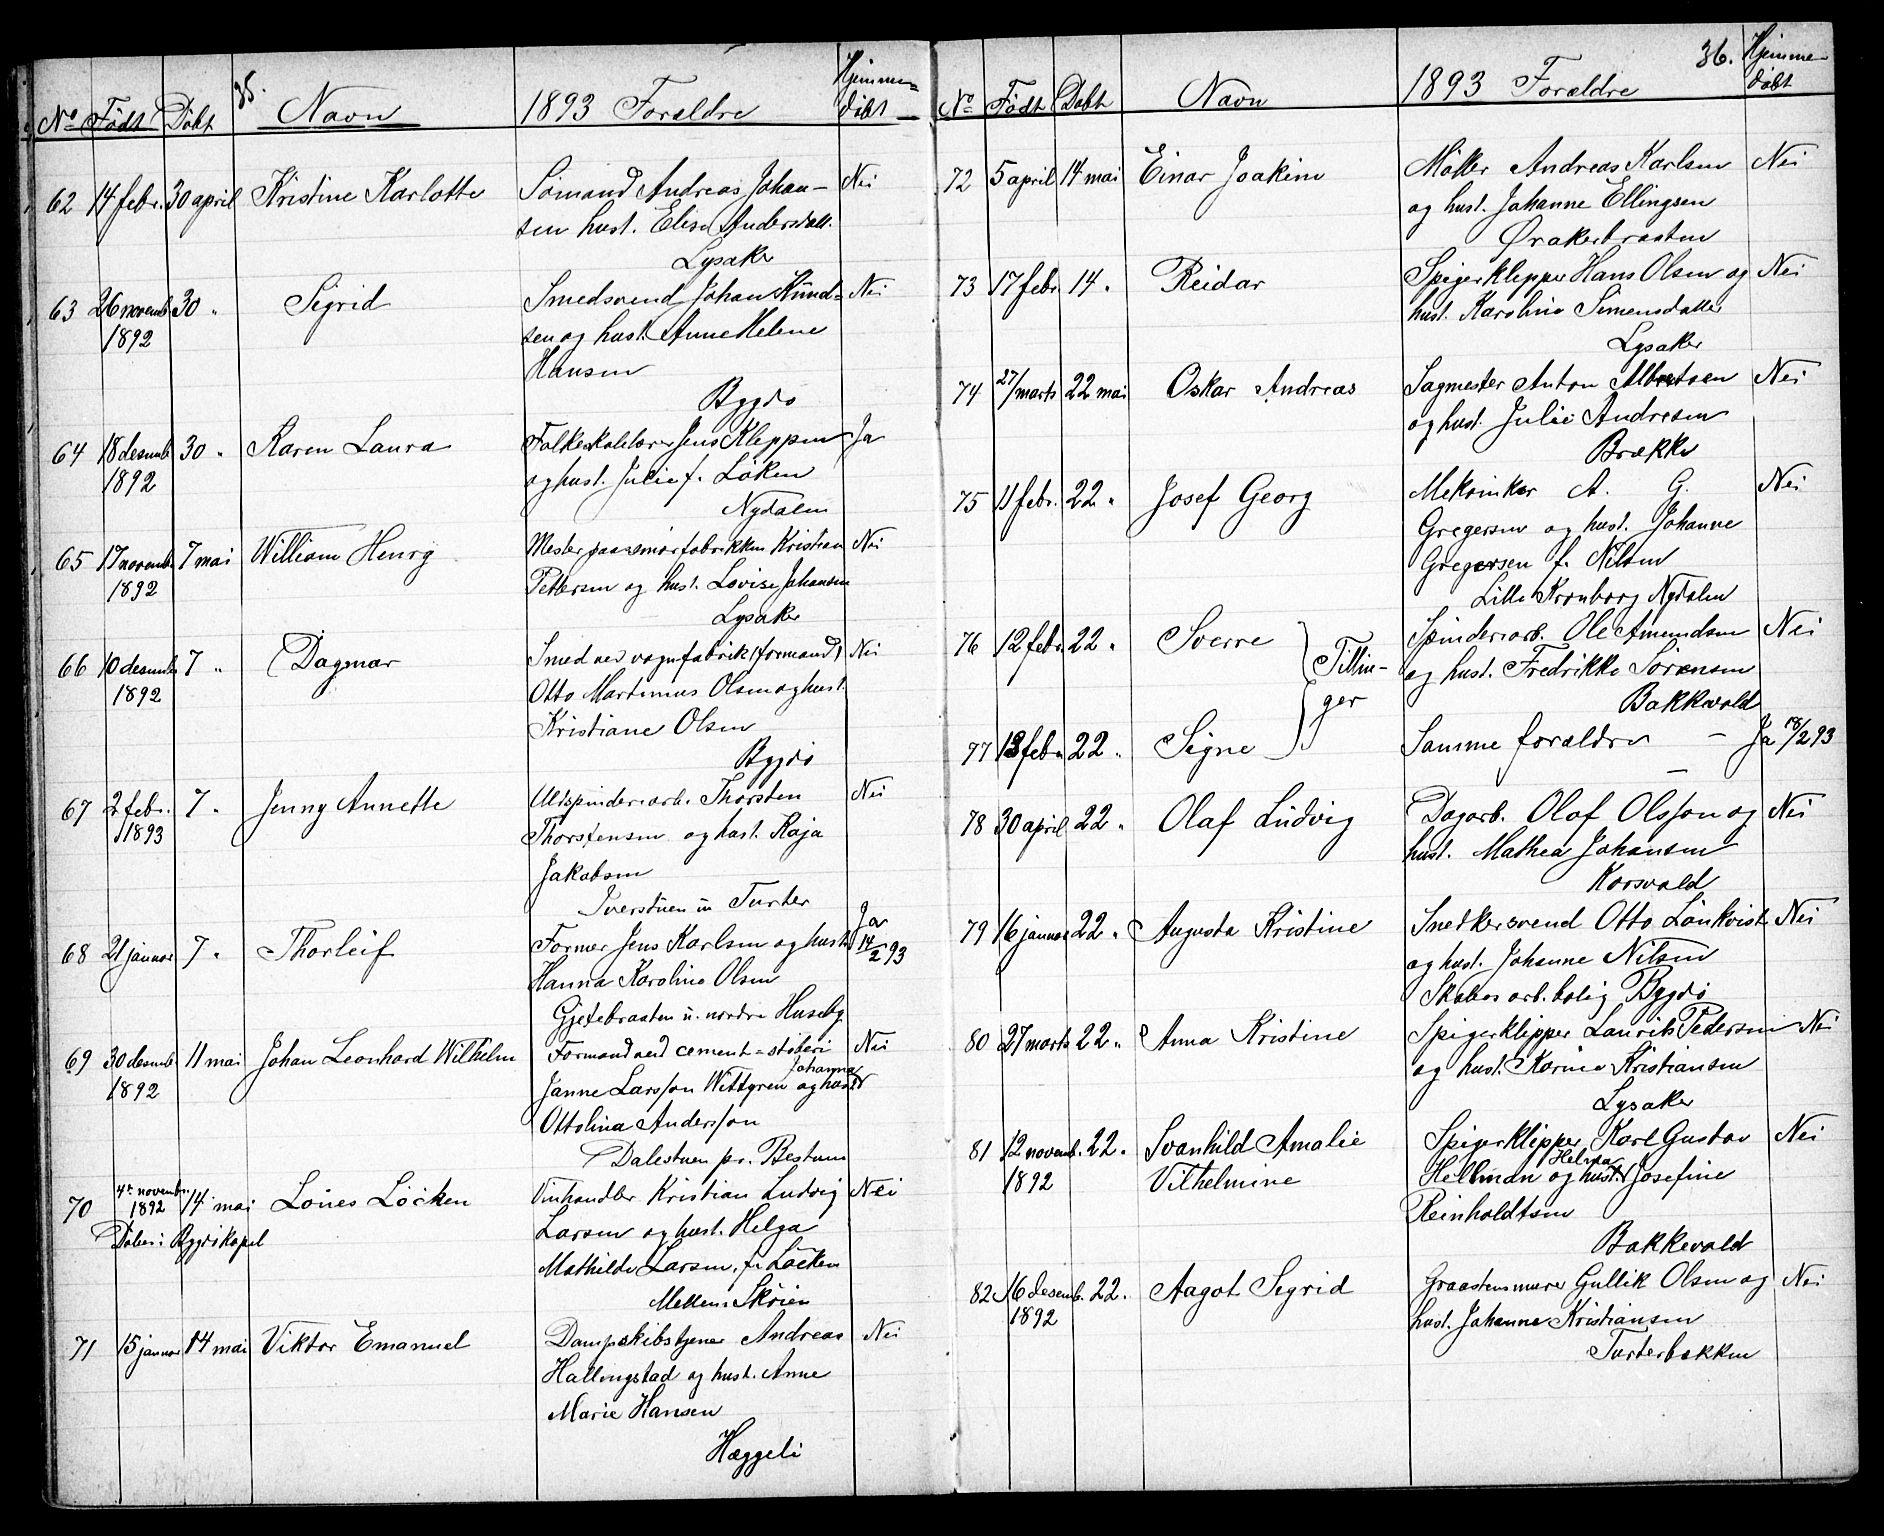 35.
No Født Døbt Navn 1893 Forældre Hjemme-
døbt
62 14 febr. 30 april Kristine Karlotte Sømand Andreas Johan- Nei
sen hust. Elise Andersdatt.
Lysaker
63 26 novemb. 30 " Sigrid Smedsvend Johan Knud- Nei
1892 sen og hust. Anne Helene
Hansen
Bygdø
64 18 desemb. 30 " Karen Laura Folkeskolelærer Jens Kleppen Ja
1892 og hust. Julie f. Løken
Nydalen
65 17 novemb. 7 mai William Henry Mester paa smørfabrikken Kristian Nei
1892 Pettersen og hust. Lovise Johansen
Lysaker
66 10 desemb. 7 " Dagmar Smed ved vognfabrik (formand) Nei
1892 Otto Martinius Olsen og hust.
Kristiane Olsen
Bygdø
67 2 febr. 7 " Jenny Annette Uldspinderiarb. Thorsten Nei
1893 Thorstensen og hust. Kaja
Jakobsen
Iverstuen u. Turter
68 21 januar 7 " Thorleif Former Jens Karlsen og hust. Ja 14/2 93
Hanna Karoline Olsen
Gjetebraaten u. nordre Huseby
69 30 desemb. 11 mai Johan Leonhard Wilhelm Formand ved cement-støberi Nei
1892 Janne Larsson Wittgren og hust. Johanna
Ottolina Andersson
Dalestuen pr. Bestum
70 4de novembr. 1892 14 mai Lönes Löcken Vinhandler Kristian Ludvig Nei
Døbt i Bygdø kapel Larsen og hust. Helga
Mathilde Larsen, f. Löcken
Mellem Skøien
71 15 januar 14 mai Viktor Emanuel Dampskibstjener Andreas Nei
Hallingstad og hust. Anne
Marie Hansen
Hæggeli
36.
No Født Døbt Navn 1893 Forældre Hjemme-
døbt
72 5 april 14 mai Einar Joakim Møller Andreas Karlsen Nei
og hust. Johanne Ellingsen
Ørakerbraaten
73 17 febr. 14 " Reidar Spigerklipper Hans Olsen og Nei
hust. Karoline Simensdatter
Lysaker
74 27/marts 22 mai Oskar Andreas Sagmester Anton Albretsen Nei
og hust. Julie Andresen
Brække
75 11 febr. 22 " Josef Georg Mekaniker A. G. Nei
Gregersen og hust. Johanne
Gregersen f. Nilsen
Lille Kronborg Nydalen
76 12 febr. 22 " Sverre Tillin- Spinderiarb. Ole Amundsen Nei
ger og hust. Fredrikke Sørensen
Bakkevold
77 13 febr. 22 " Signe Samme forældre – Ja 18/2 93
78 30 april 22 " Olaf Ludvig Dagarb. Olof Olsson og Nei
hust. Mathea Johansen
Korsvold
79 16 januar 22 " Augusta Kristine Snedkersvend Otto Lönkvist Nei
og hust. Johanne Nilsen
Skabos arb.bolig Bygdø
80 27 marts 22 " Anna Kristine Spigerklipper Laurits Pedersen Nei
og hust. Karine Kristiansen
Lysaker
81 12 novemb. 22 " Svanhild Amalie Spigerklipper Karl Gustav Nei
1892 Vilhelmine Hellman og hust. Helma Josefine
Reinholdtsen
Bakkevold
82 16 desemb. 22 " Aagot Sigrid Graastensmurer Gullik Olsen og Nei
1892 hust. Johanne Kristiansen
Turterbakken